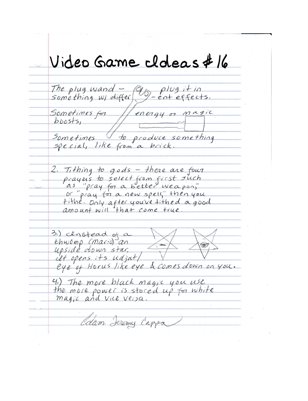 Video Game Ideas #16
The plug wand - plug it in
something w/ differ - ent effects.
Sometimes for energy or magic
boosts,
Sometimes to produce something
special, like from a brick.
2. Tithing to gods - there are four
prayers to select from first such
as "pray for a better weapon,"
or "pray for a new spell," then you
tithe. Only after you've tithed a good
amount will that come true.
3.) Instead of a
thwomp (Mario) an
upside down star,
it opens its udjat/
eye of Horus like eye & comes down on you.
4.) The more black magic you use
the more power is stored up for white
magic and vice versa.
Adam Jeremy Capps